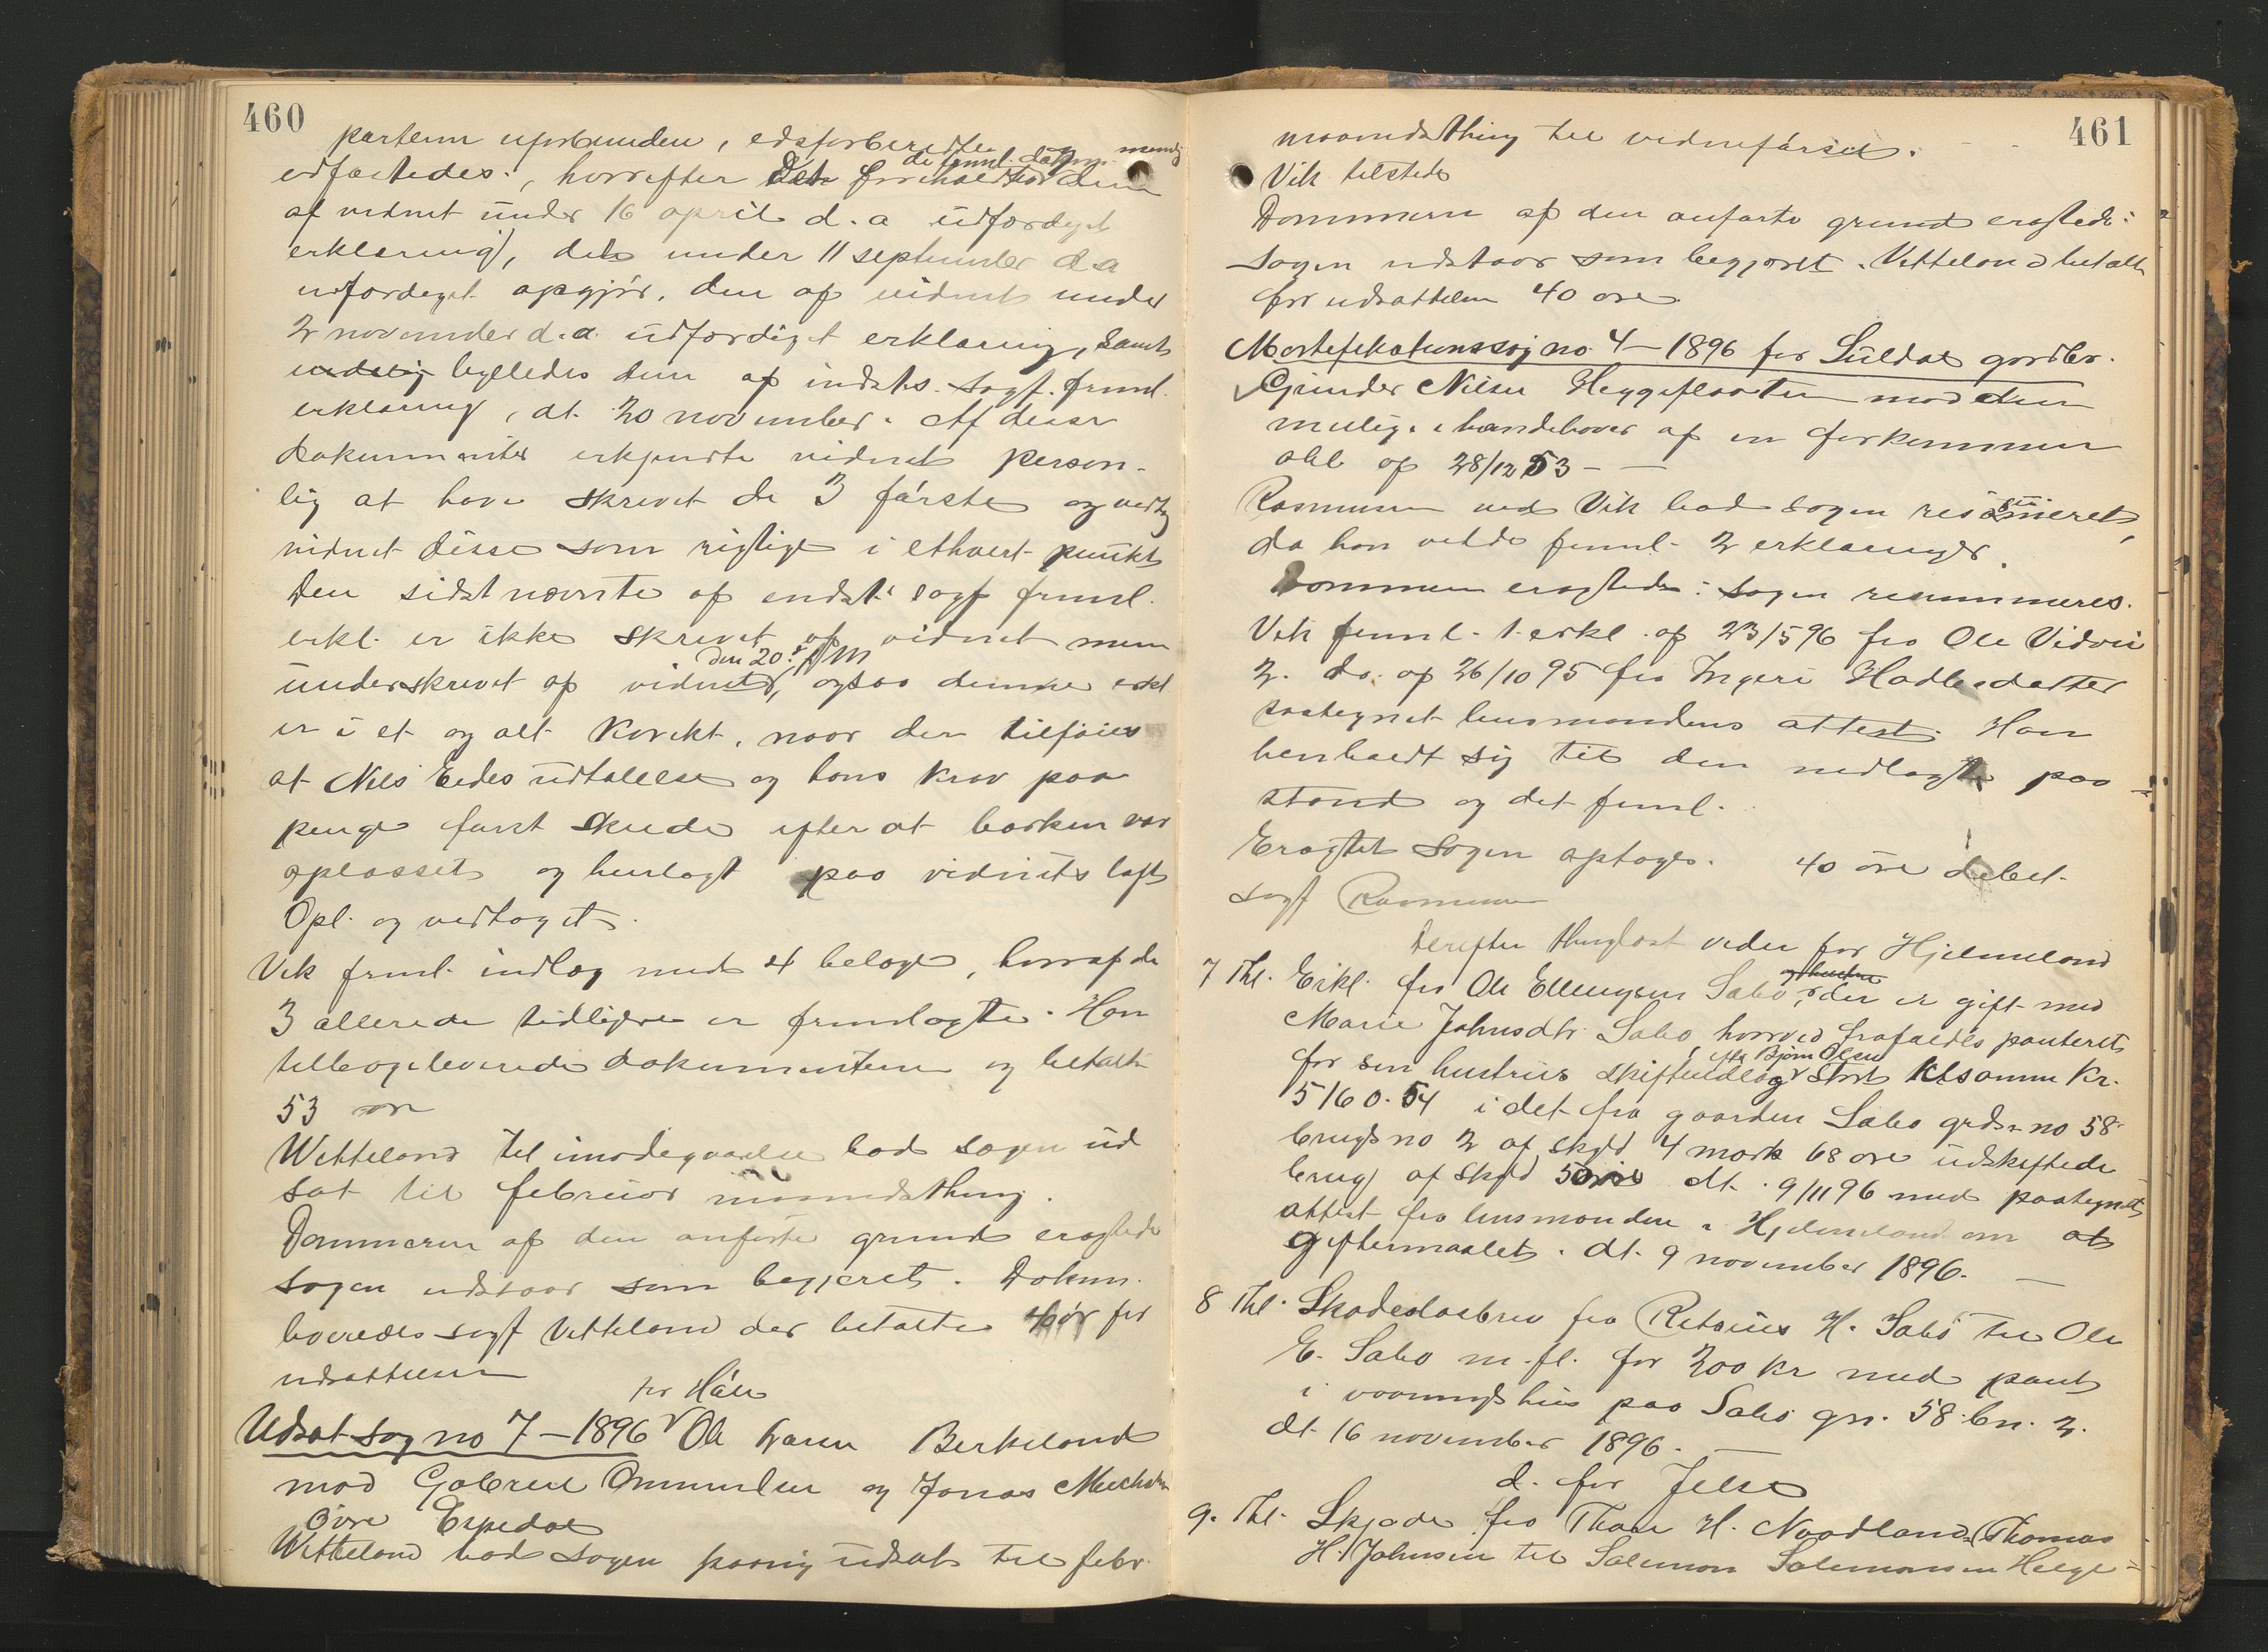 460
partenn uforbunden, edsforberedtes
de fruml. dokum. nemlig
edfæstedes, hvorefter Det foreholdtes den
af vidnet under 16 april d.a udfærdiget
erklæring, det under 11 september d.a
udfærdiget opgjør, den af vidnet under
2 november d.a. udfærdiget erklæring, samt
endelig bylledes den af indsts. sagf. fruml.
erklæring, dt. 20 november. Af disse
Dokumenter erkjendte vidnet person-
lig at have skrevet de 3 første og vedtog
vidnet disse som rigtige i ethvert punkt
Den sidstnævnte af indst. sagf. fruml.
erkl. er ikke skrevet af vidnet men
den 20. ds. f M
underskrevet af vidnet, ogsaa denne erkl
er i et og alt korekt, naar der tilføies
at Nils Eides udtalelse og hans krav paa
penge først skede efter at barken var
oplosset og henlagt paa vidnets loft
Opl. og vedtaget.
Vik fruml. indlæg med 4 belage, hvoraf de
3 allerede tidligere er fremlagte. Han
tilbageleverede dokumenterne og betalte
53 øre
Wetteland til imødegaaelse bad sagen ud
sat til februar maanedsthing.
Dommeren af den anførte grund eragtede
sagen udstaar som begjæret. Dokum.
leveredes sagf Vetteland der betalte 40 ør for
udsættelsen
for Håle
Udsat sag no 7 – 1896 Ole Larsen Berkeland
mod Gabriel Ommundsen og Jonas Mickelsen
Øvre Espedal
Wetteland bad sagen paany udsat til febr.
461
maanedsthing til vidneførsel.
Vik tilstede
Dommeren af den anførte grund eragtede:
Sagen udstaar som begjæret. Vetteland betalte
for udsættelsen 40 øre
Mortifikationssag no. 4 – 1896 for Suldal gardbr.
Gunder Nilsen Heggeflaaten mod den
mulige ihændehaver af en forkommen
obl af 28/12 53 –
Rasmussen ved Vik bad sagen resumeret,
da han vilde fruml. 2 erklæringer.
Dommeren eragtede: Sagen resummeres.
Vik fruml. 1. erkl. af 23/5 96 fra Ole Vidvei
2. do. af 26/10 95 fra Ingeri Hadlesdatter
paategnet lensmandens attest. Han
henholdt sig til den nedlagte paa-
stand og det fruml.
Eragtet Sagen optages. 40 øre debet.
Sagf Rasmussen
Derefter thinglæst videre for Hjelmeland
7 Thl. Erkl. fra Ole Ellingsen Sabø, der er gift med
og hustru
Marie Johnsdtr. Sabø, hvorved frafaldes panteret
efter Bjørn Olsen
for sin hustrus skifteudlæg stort tilsammen Kr.
5160.54 i det fra gaarden Sabø grds. no 58
brugs no 2 af skyld 4 mark 68 øre udskiftede
brug af skyld 50 øre dt. 9/11 96 med paategnet
attest fra lensmanden i Hjelmeland om at
giftermaalet. dt. 9 november 1896.
8 Thl. Skadesløsbrev fra Retsius H. Sabø til Ole
E. Sabø m.fl. for 200 kr med pant
i vaaningshus paa Sabø gn. 58 bn. 2.
dt. 16 november 1896.
d. for Jelse
9. Thl. Skjøde fra Thore H. Nordland (Thomas
H. Johnsen til Salemon Salemonsen Helge-